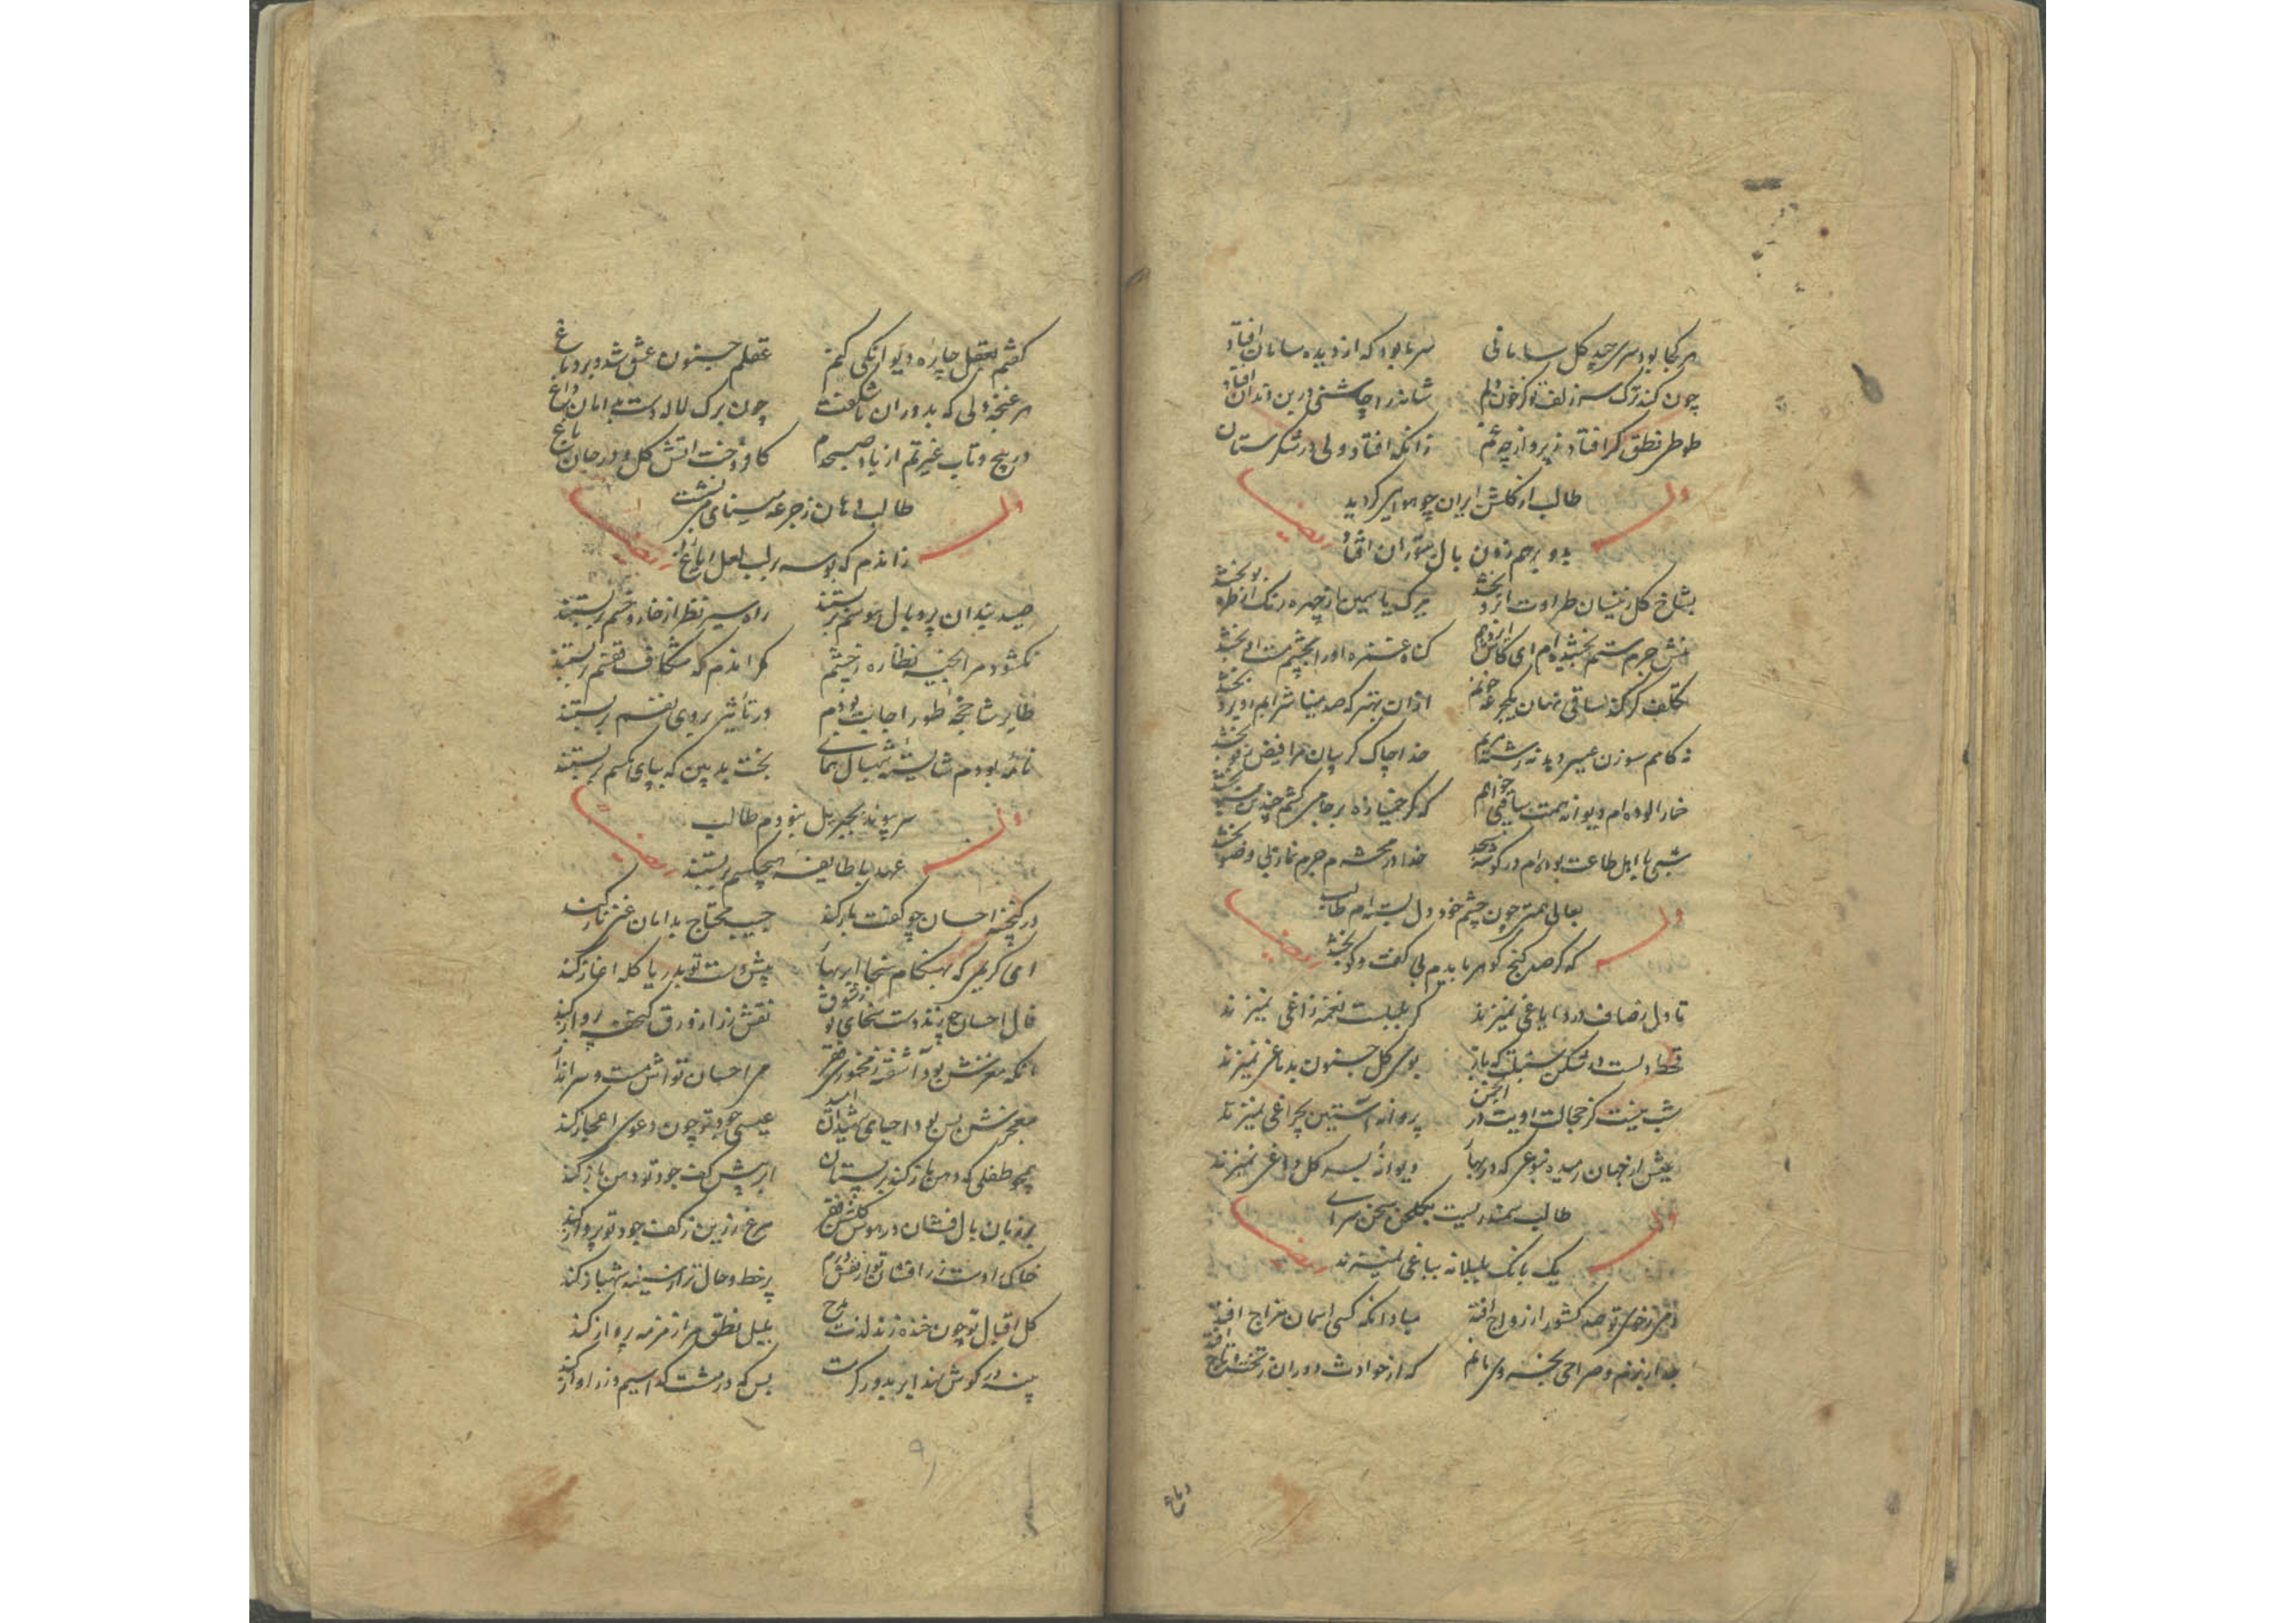 هر کجا بود سری چید کل سامانی سر ما بود که از دیده سامان افتاد
چون کند ترک سر زلف تو کز خون دلم شانه را چاشنی در بن دندان افتاد
طوطی نطق کر افتاد ز پرواز چه غم زانکه افتاد ولی در شکرستان
طالب از کلشن ایران چو هوا کردید
بدو برهم زدن بال بتوران افتاد
وله ایضا
بشاخ کل ز نیسان طراوت بخشد ببرک یاسمین از چهره رنک از طره بو بخشد
جرم ستم بخشیده ام ای کاش کناه غمزه او را بچشم مست او بخشد
تکلف کر کند ساقی نهان یکجرعه خونم از ان بهتر که صد مینا شرابم بخشد
نه کامم سوزن عیسی دهد نه رشته مریم خدا چاک کریبان مرا فیض رفو بخشد
خمار الوده ام دیوانه همت ساقی خواهم که کر خمیازه بر جامی کشم چندین سبو بخشد
شبی با اهل طاعت بوده ام در کوشه مسجد خدا در محشرم جرم نماز بی وضو بخشد
بعالی همتی چون چشم خود دل بسته ام طالب
که کر صد کنج کوهر یابدم بی کفت و کو بخشد
وله ایضا
تا دل ز صاف درد ایاغی نمیزند کر بلبلست نغمه زاغی نمیزند
قحط دلست در شکن سنبلت که باز بوی کل جنون بدماغی نمیزند
شب نیست کز خجالت رویت در انجمن پروانه آستین بچراغی نمیزند
عیش از جهان رمیده بنوعی که در بهار دیوانه بسر کل داغی نمیزند
طالب سمندریست بکلخن سخن سرای
یک بانک بلبلانه بباغی نمیزند
وله ایضا
ز خوی تو صد کشور از رواج افتد مباد انکه کسی اسمان مزاج افتد
جدا ز بزم و صراحی بخسروی مانم که از حوادث دوران ز تخت و تاج افتد
دماغ
کفتم بعقل چاره دیوانکی کنم عقلم جنون عشق شد و بر دماغ
هر غنچه دلی که بدوران ما شکفت چون برک لاله دست بدامان داغ
در پیچ و تاب غیرتم از باد صبحدم کافروخت اتش کل و در جان باغ
طالب دهان ز جرعه مینای می نشست
زاندم که بوسه بر لب لعل ایاغ
وله ایضا
صید بندان پر و بال هوسم بر بستند راه سیر نظر از خار و خسم بر بستند
نکشودم مرا بخیه نظاره ز چشم مکر اندم که شکاف قفسم بر بستند
طایر شاخچه طور اجابت بودم در تأثیر بروی نفسم بر بستند
نامه بودم شایسته شهبال همای بخت بد بین که بپای مکسم بر بستند
سر پیوند بجبریل نبودم طالب
عهد با طایفه هیچکسم بر بستند
وله ایضا
در کنجینه احسان چو کفت باز کند جیب محتاج بدامان غنی ناز کند
ای کریمی که بهنکام سخا ابر بهار پیش دست تو بدریا کله اغاز کند
فال احسان چو زند دست سخای تو ز شوق نقش زر از ورق کنجفه پرواز کند
انکه مغزش بود آشفته ز مخموری فقر می احسان تواش مست و سرانداز
معجزش بس بود احیای عیسی جود تو چون دعوی اعجاز کند
همچو طفلی که دهن باز کند بر پستان ابر پیش کف جود تو دهن باز کند
هر زمان بال فشان در هوس کلشن فقر مرغ زرین ز کف جود تو پرواز کند
خاکی دست زر افشان تو از نقش درم پر خط و خال تر از سینه شهباز کند
کل اقبال تو چون خنده زند لذت مدح بلبل نطق مرا زمزمه پرداز کند
پنبه در کوش نهد ابر بدور کرمت بس که در مشت کدا سیم و زر اواز کند
۹۱